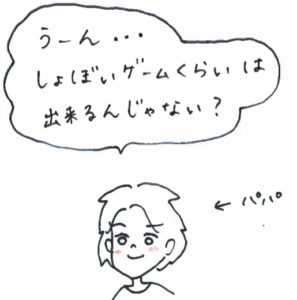 うーん・・・
しょぼいゲームくらいは
出来るんじゃない？
← パパ